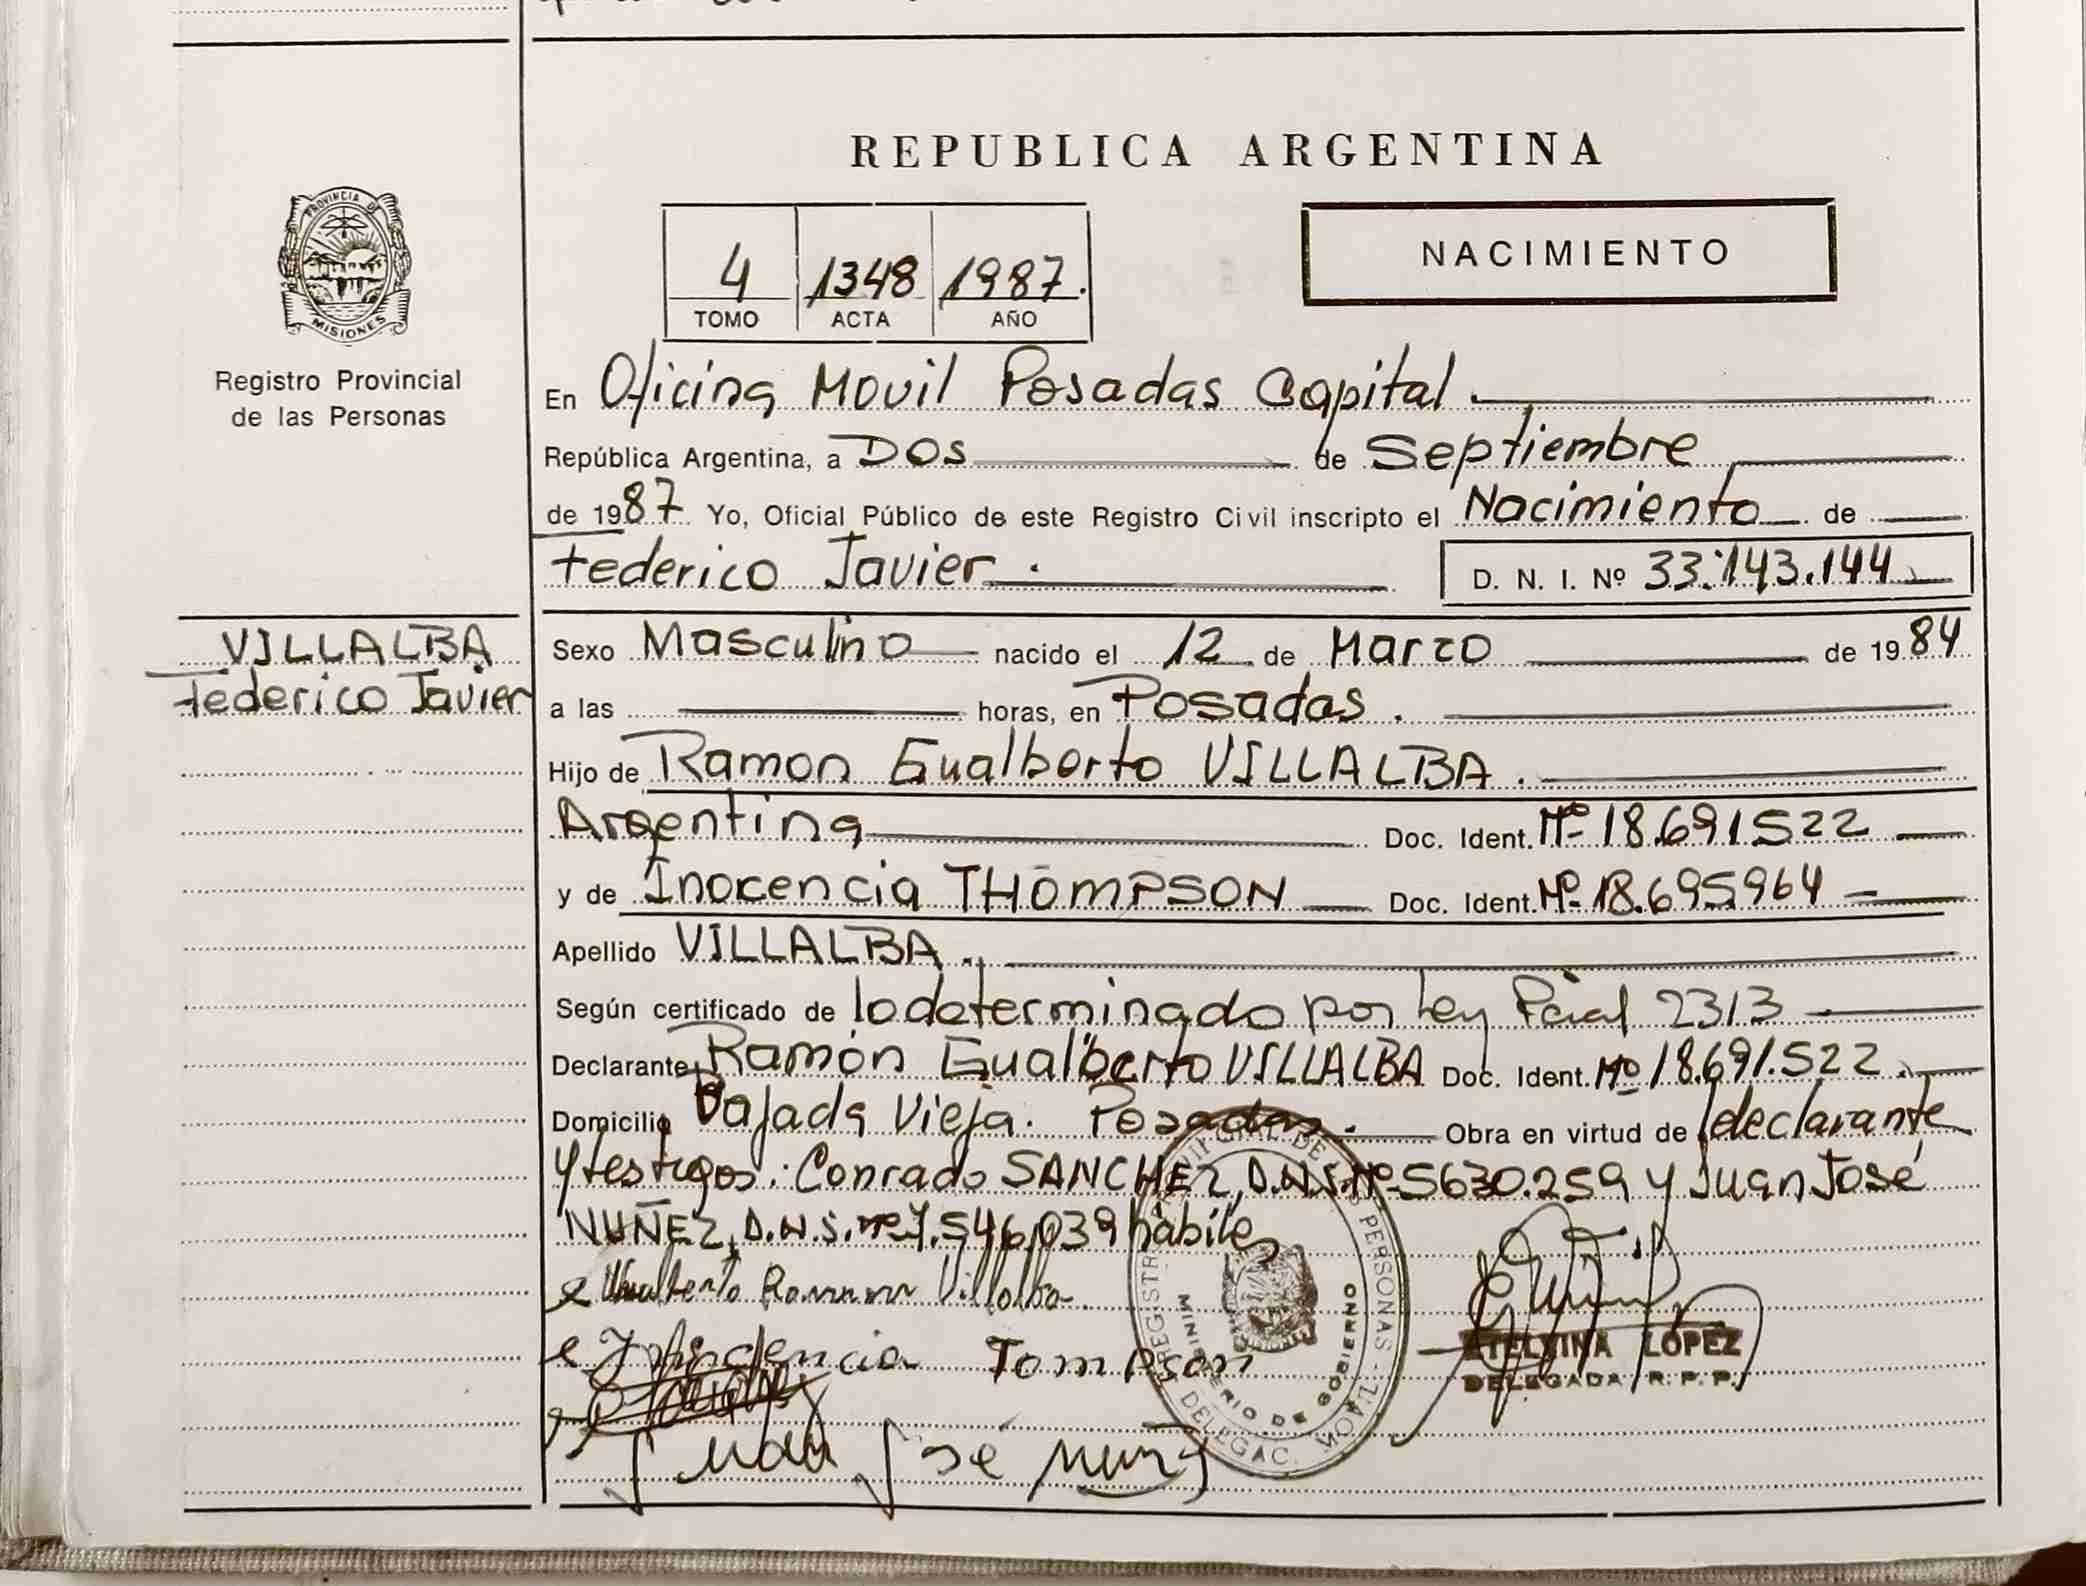 REPUBLICA ARGENTINA
PROVINCIA DE
MISIONES
Registro Provincial
de las Personas
4 1348 1987.
TOMO ACTA AÑO
NACIMIENTO
En Oficina Movil Posadas Capital.
República Argentina, a Dos de Septiembre
de 1987. Yo, Oficial Público de este Registro Civil inscripto el Nacimiento de
Federico Javier. D. N. I. Nº 33.143.144
VILLALBA
Federico Javier
Sexo Masculino nacido el 12 de Marzo de 1984
a las horas, en Posadas.
Hijo de Ramon Gualberto VILLALBA.
Argentina Doc. Ident. Nº 18.691.522
y de Inocencia THOMPSON Doc. Ident. Nº 18.695964
Apellido VILLALBA.
Según certificado de lo determinado por Ley Pcial 2313
Declarante Ramón Gualberto VILLALBA Doc. Ident. Nº 18.691.522.
Domicilio Bajada Vieja. Posadas. Obra en virtud de declarante
y testigos: Conrado SANCHEZ, D.N.I. Nº 5630.259 y Juan José
NUÑEZ, D.N.I. nº 7.546.039 hábiles
Ramon Villalba
Tompson
Juan José
ETELVINA LOPEZ
DELEGADA R.P.P.
DE LAS PERSONAS - DELEGAC. MOVIL
MINISTERIO DE GOBIERNO